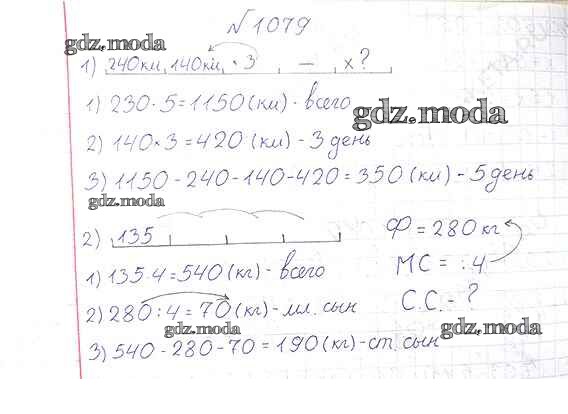 №1079
gdz.moda
1) 240км, 140км, •3 — х?
1) 230·5=1150(км)- всего
gdz.moda
2) 140×3=420(км)-3 день
3) 1150-240-140-420=350(км)-5день
gdz.moda
2) 135
Ф=280кг
1) 135·4=540(кг)- всего
МС= :4
2) 280:4=70(кг)-мл. сын
С.С.-?
gdz.moda
gdz.moda
3) 540-280-70=190(кг)-ст. сын